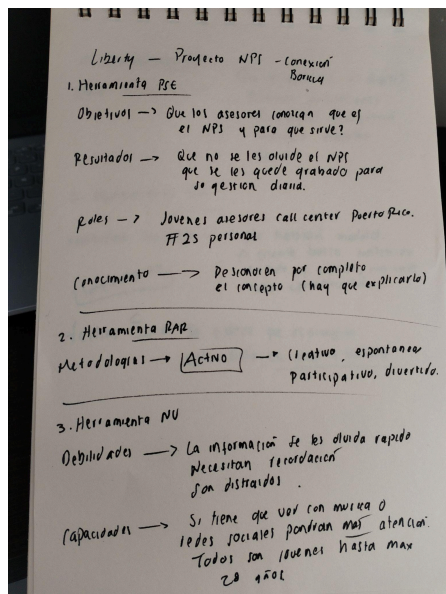 Liberty — Proyecto NPS - Conexión
Boricua
1. Herramienta PSE
Objetivos —> Que los asesores conozcan que es
el NPS y para que sirve?
Resultados —> Que no se les olvide el NPS
que se les quede grabado para
su gestion diaria.
Roles —> Jovenes asesores call center Puerto Rico.
# 25 personas
Conocimiento —> Desconocen por completo
el concepto (hay que explicarlo)
2. Herramienta RAR
Metodologias —> Activo —> Creativo, espontanea
participativo, divertido.
3. Herramienta NU
Debilidades —> La información se les olvida rapido
Necesitan recordación
son distraidos.
Capacidades —> Si tiene que ver con musica o
redes sociales pondran mas atencion.
Todos son jovenes hasta max
28 años